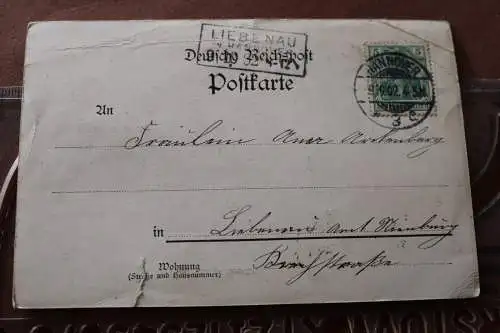 LIEBENAU
Deutsche Reichspost
Postkarte
HANNOVER
5
3
An
Fräulein Anna
in Liebenau Amt Nienburg
Wohnung
(Straße und Hausnummer)